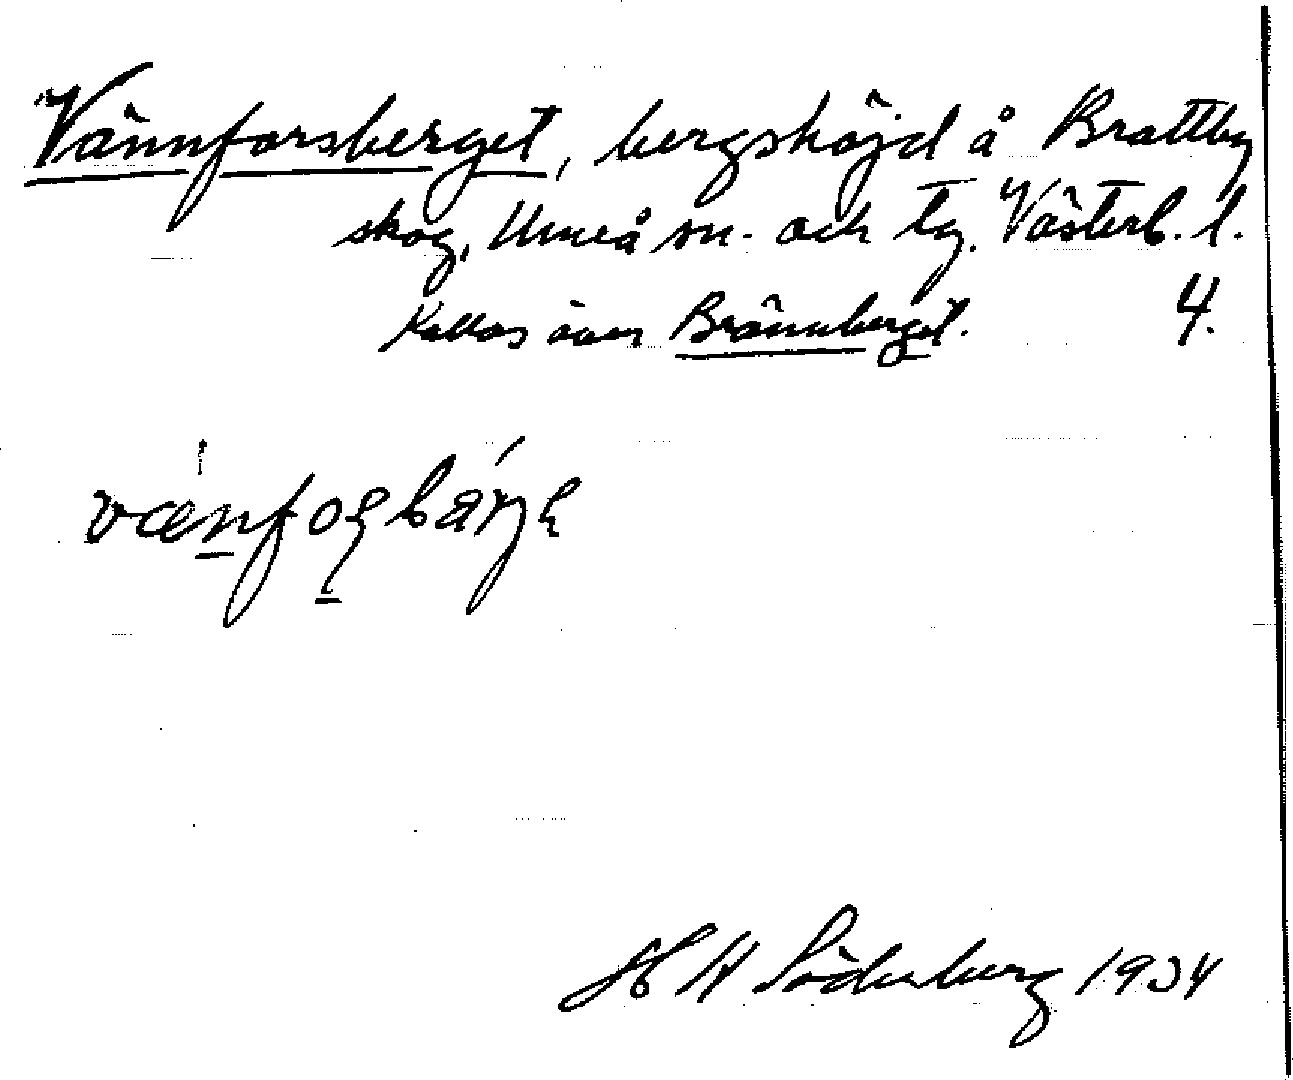 Vännforsberget, bergshöjd å Brattby
skog, Umeå sn. och tg. Västerb. l.
Kallas även Brännberget. 4.
H W Söderberg 1934